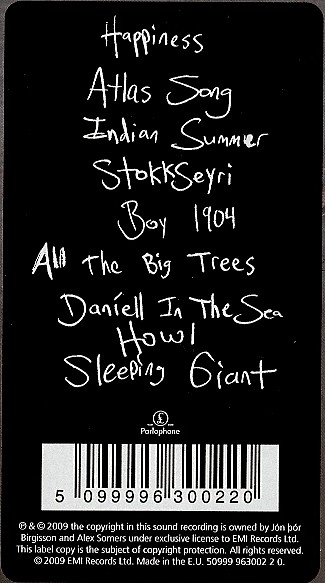 Happiness
Atlas Song
Indian Summer
Stokkseyri
Boy 1904
All The Big Trees
Daníell In The Sea
Howl
Sleeping Giant
£
Parlophone
5 099996 300220
℗ & © 2009 the copyright in this sound recording is owned by Jón þór
Birgisson and Alex Somers under exclusive license to EMI Records Ltd.
This label copy is the subject of copyright protection. All rights reserved.
© 2009 EMI Records Ltd. Made in the E.U. 50999 963002 2 0.